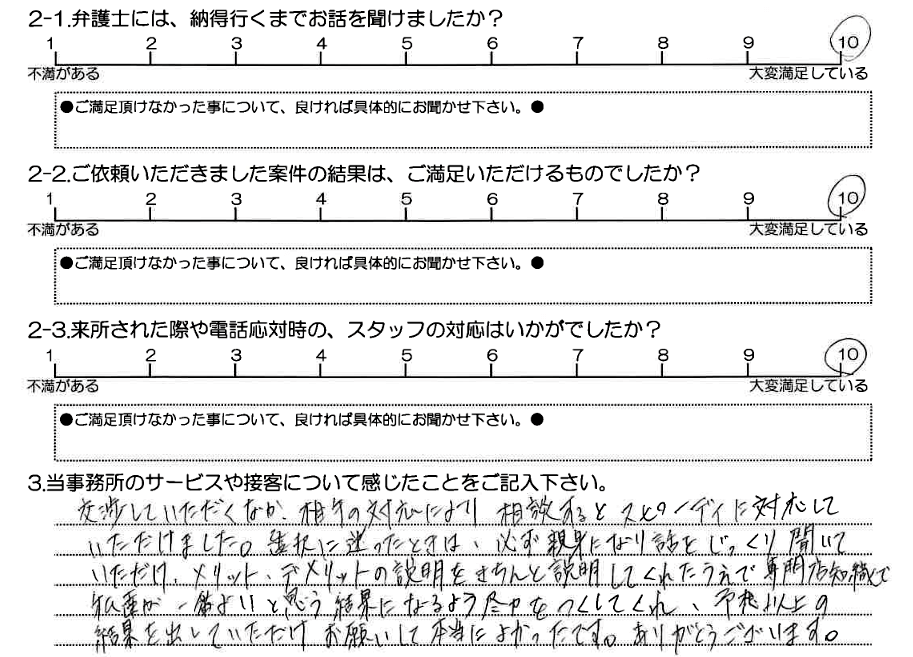 2-1.弁護士には、納得行くまでお話を聞けましたか？
1 2 3 4 5 6 7 8 9 10
不満がある 大変満足している
●ご満足頂けなかった事について、良ければ具体的にお聞かせ下さい。●
2-2.ご依頼いただきました案件の結果は、ご満足いただけるものでしたか？
1 2 3 4 5 6 7 8 9 10
不満がある 大変満足している
●ご満足頂けなかった事について、良ければ具体的にお聞かせ下さい。●
2-3.来所された際や電話応対時の、スタッフの対応はいかがでしたか？
1 2 3 4 5 6 7 8 9 10
不満がある 大変満足している
●ご満足頂けなかった事について、良ければ具体的にお聞かせ下さい。●
3.当事務所のサービスや接客について感じたことをご記入下さい。
交渉していただくなか、相手の対応により 相談するとスピーディに対応して
いただけました。選択に迷ったときは、必ず親身になり話をじっくり聞いて
いただけ、メリット、デメリットの説明をきちんと説明してくれたうえで専門知識で
私達が一番よいと思う結果になるよう尽力をつくしてくれ、予想以上の
結果を出していただけお願いして本当によかったです。ありがとうございます。